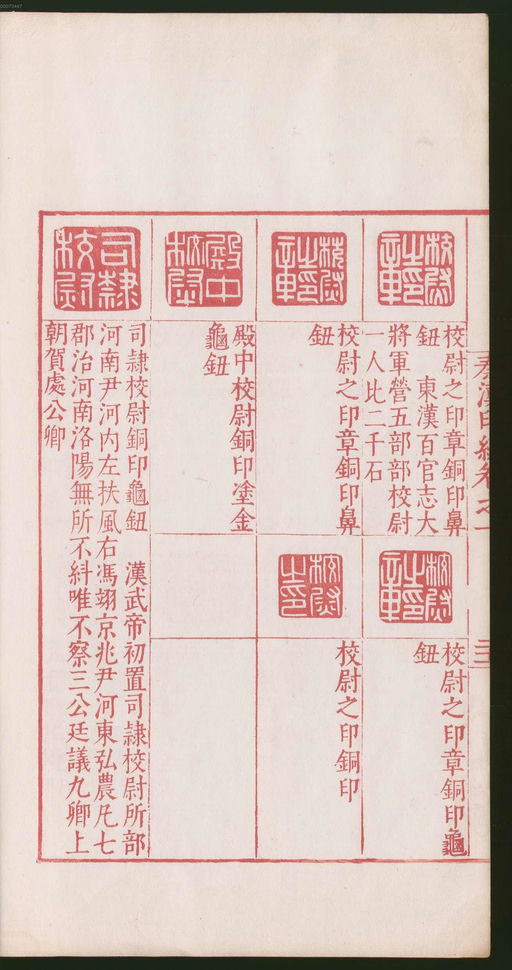 00073447
秦漢印統卷之一
三二
校尉之印章
校尉之印章銅印鼻
鈕　東漢百官志大
將軍營五部部校尉
一人比二千石
校尉之印章
校尉之印章銅印龜
鈕
校尉之印章
校尉之印章銅印鼻
鈕
校尉之印
校尉之印銅印
殿中校尉
殿中校尉銅印塗金
龜鈕
司隸校尉
司隸校尉銅印龜鈕　漢武帝初置司隸校尉所部
河南尹河內左扶風右馮翊京兆尹河東弘農凡七
郡治河南洛陽無所不糾唯不察三公廷議九卿上
朝賀處公卿